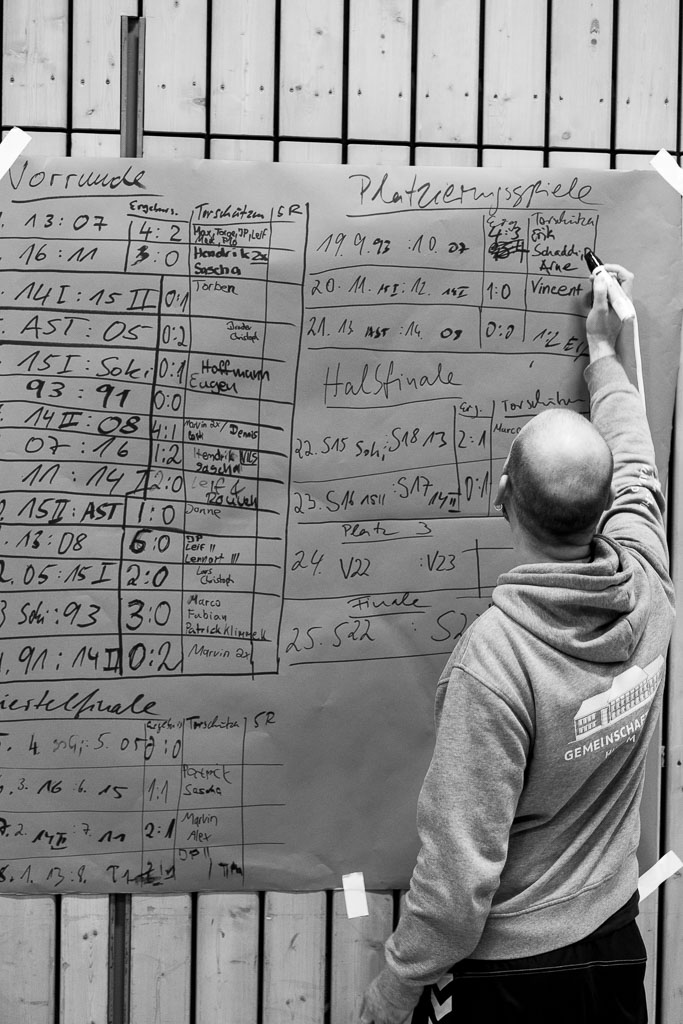 Vorrunde
Ergebnis. Torschützen SR
13:07 4:2 Max, Torge, JP, Leif
16:11 3:0 Hendrik 2x
Sascha
14I:15II 0:1 Torben
AST:05 0:2 Christoph
15I:Soki 0:1 Hoffmann
Eugen
93:91 0:0
14II:08 4:1 Marvin 2x/ Dennis
07:16 1:2 Hendrik NILS
Sascha
11:14I 2:0 Leif &
15II:AST 1:0 Donne
13:08 6:0 JP
Leif II
Lennart III
05:15I 2:0 Lars
Christoph
Soki:93 3:0 Marco
Fabian
Patrick Klimmek
91:14II 0:2 Marvin 2x
iertelfinale
Ergebnis Torschützen SR
4. Soki:5. 05 2:0
3. 16:6. 15 1:1 Patrick
Sascha
2. 14II:7. 11 2:1 Marvin
Alex
1. 13:8. JP II
Platzierungsspiele
Erg. Torschütze
19. 9. 93 :10. 07 4:3 Erik
Schaddi
Arne
20. 11. 15I:12. 14I 1:0 Vincent
21. 13 AST :14. 08 0:0 1:2 Elf
Halbfinale
Erg. Torschützen
22. S15 Soki:S18 13 2:1 Marco
23. S16 15II:S17 14II 0:1
Platz 3
24. V22 :V23
Finale
25. S22 : S2
GEMEINSCHAF